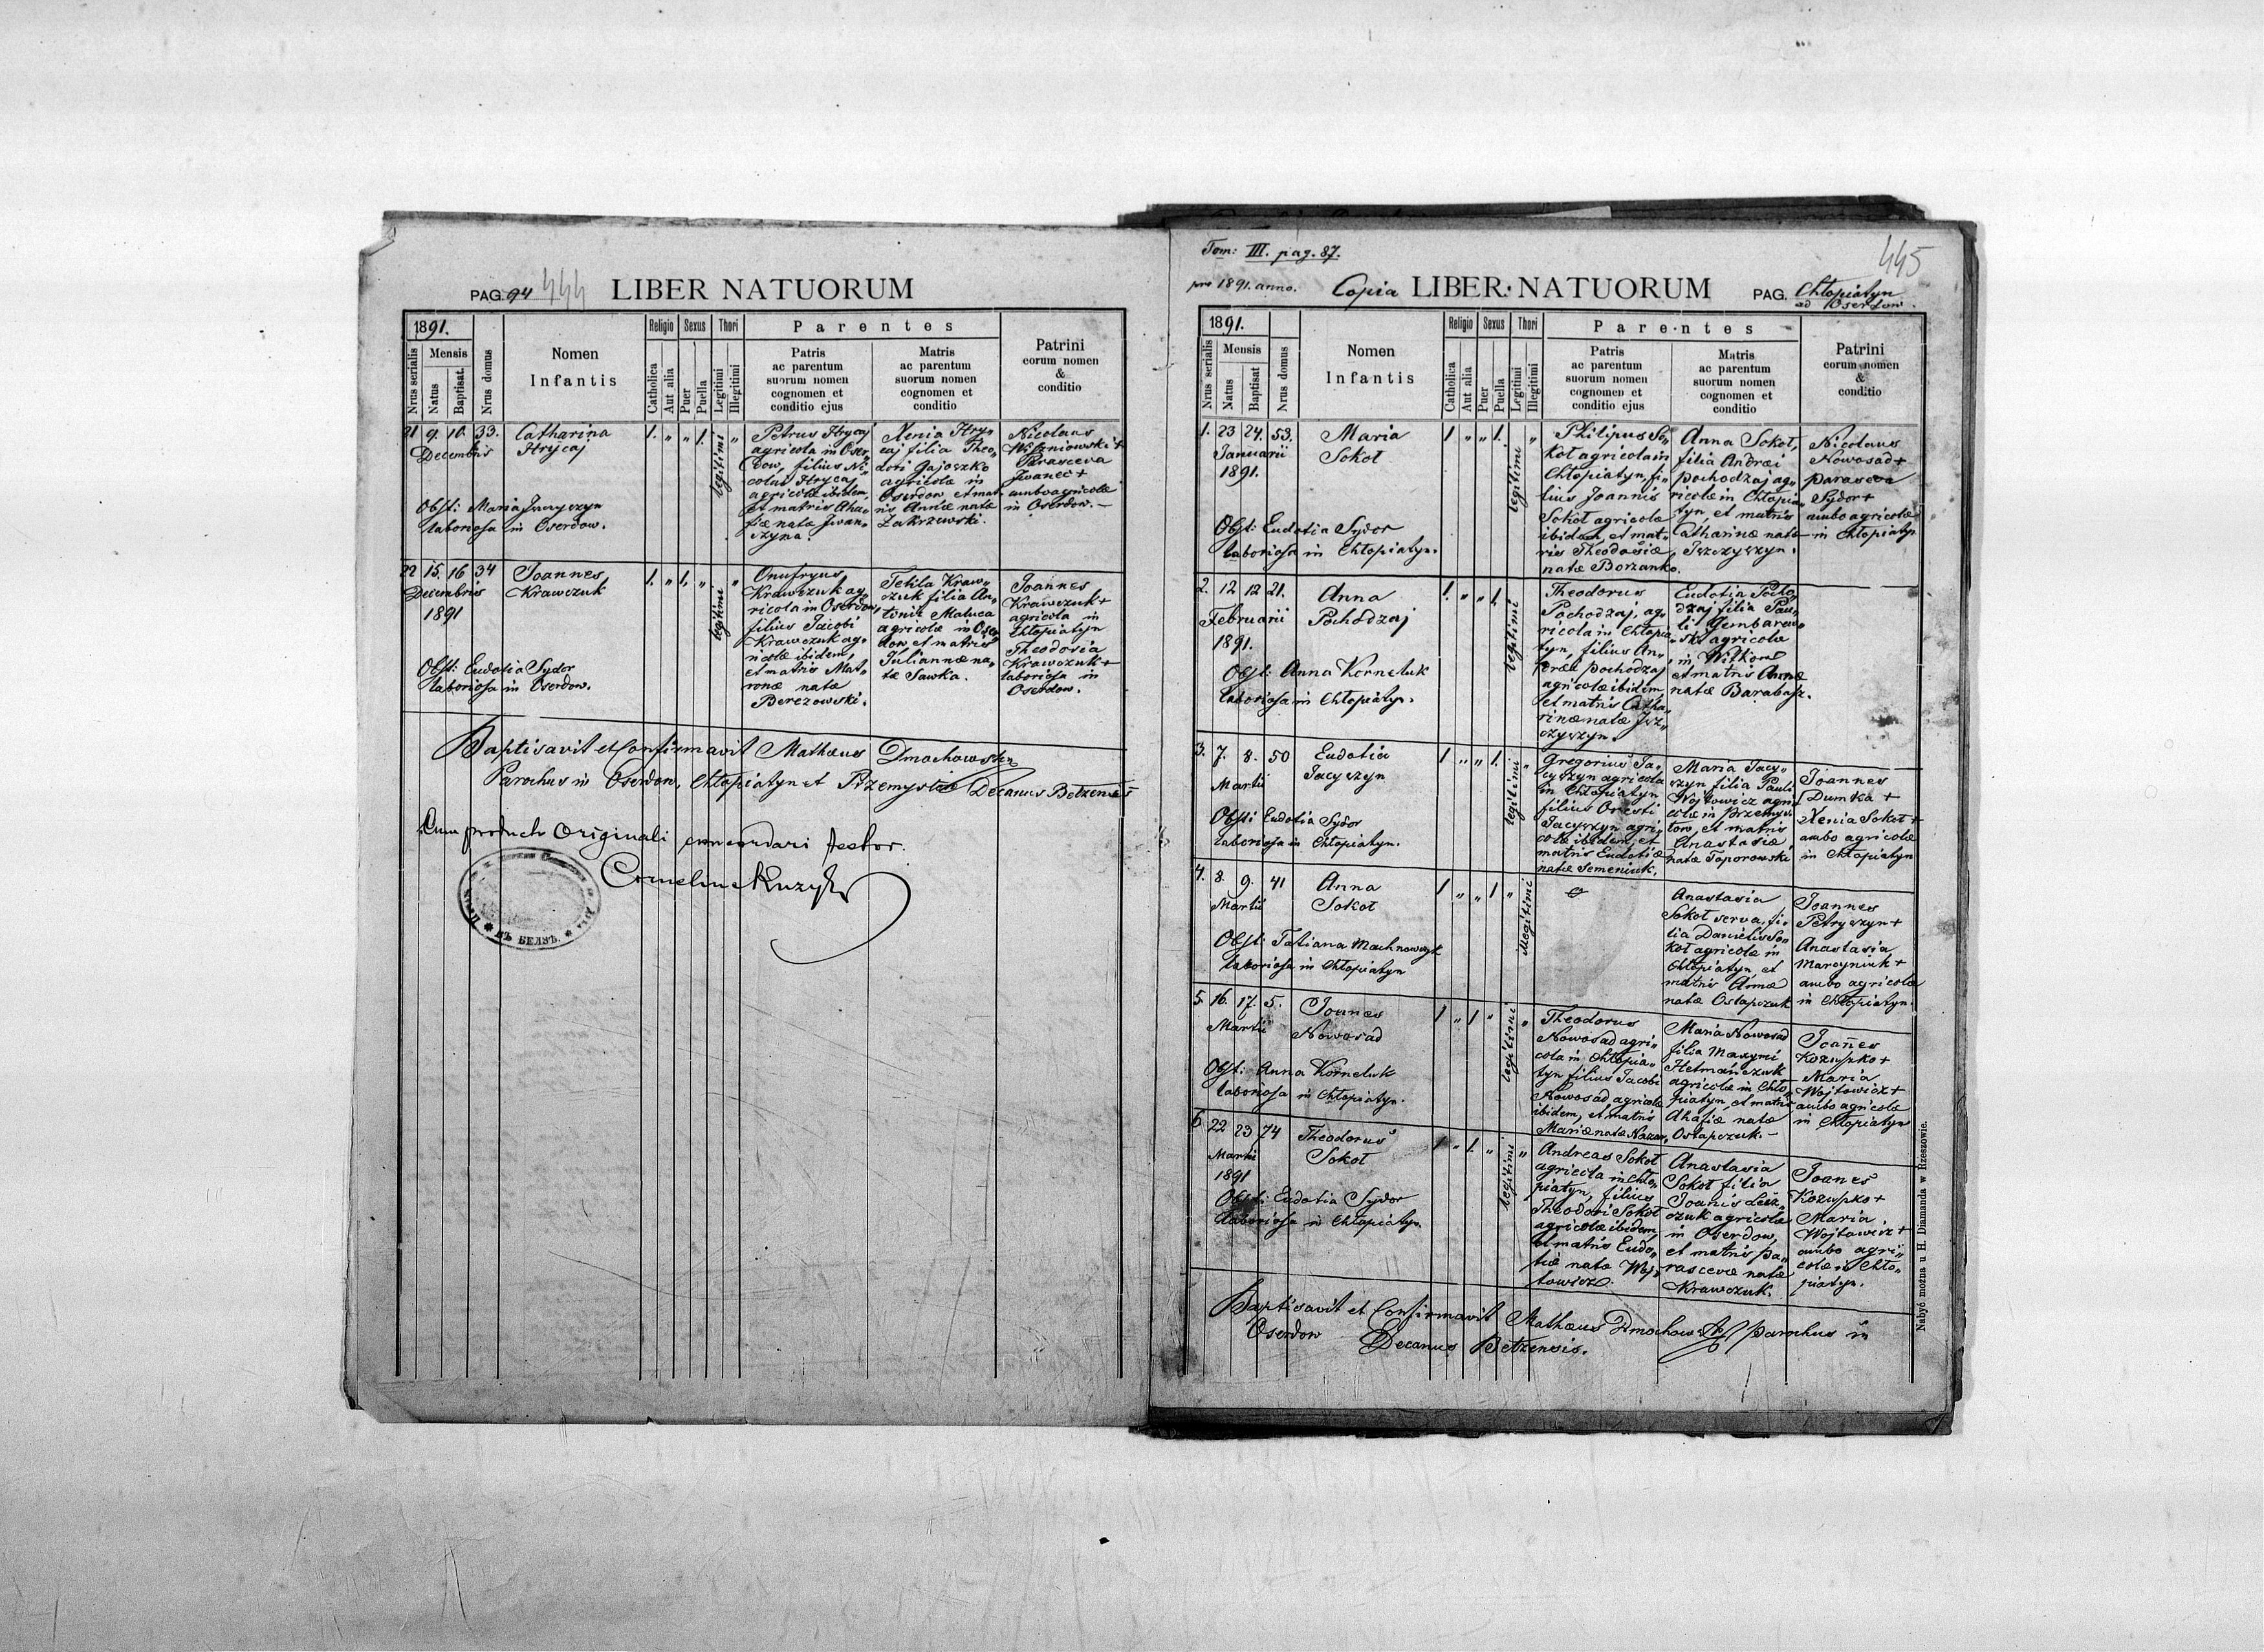 PAG. 94 444 LIBER NATUORUM
1891.
Nrus serialis
Mensis
Natus
Baptisat.
Nrus domus
Nomen
Infantis
Religio
Catholica
Aut alia
Sexus
Puer
Puella
Thori
Legitimi
Illegitimi
Parentes
Patris
ac parentum
suorum nomen
cognomen et
conditio ejus
Matris
ac parentum
suorum nomen
cognomen et
conditio
Patrini
eorum nomen
&
conditio
21 9. 10. 33.
Decembris
Catharina
Hrycaj
Obst: Maria
laboriosa in Oserdow.
1. „ „ 1. legitimi „
Petrus Hrycaj
agricola in Oser„
dow, filius Ni„
colai Hrycaj
agricolæ ibidem,
et matris Aha„
fiæ nata Jwan„
szyna.
Xenia Hry„
caj filia Theo„
dori Gajoszko
agricolæ in
Oserdow et mat„
ris Annæ natæ
Zakrzewski.
Nicolaus
Wiszniowski +
Parasceva
Jwanec +
ambo agricolæ
in Oserdow.—
22 15. 16 34
Decembris
1891
Joannes
Krawczuk
Obst: Eudotia Sydor
laboriosa in Oserdow.
1. „ 1. „ legitimi „
Onufryus
Krawczuk ag„
ricola in Oserdow,
filius Jacobi
Krawczuk ag„
ricolæ ibidem,
et matris Mat„
ronæ natæ
Berezowski.
Tekla Kraw„
czuk filia An„
tonii Maluca
agricolæ in Oser„
dow, et matris
Juliannæ na„
tæ Sawka.
Joannes
Krawczuk +
agricola in
Chłopiatyn
Theodosia
Krawczuk +
laboriosa in
Oserdow.
Baptisavit et Confirmavit Mathæus Dmochowski
Parochus in Oserdow, Chłopiatyn et Przemysłów Decanus Bełzensis
Cum producto Originali concordari testor.
Cornelius Kuzyk
ВЪ БЕЛЗѢ.
Tom: III. pag. 87.
445
pro 1891. anno. Copia LIBER NATUORUM PAG. Chłopiatyn
ad Oserdow.
1891.
Nrus serialis
Mensis
Natus
Baptisat
Nrus domus
Nomen
Infantis
Religio
Catholica
Aut alia
Sexus
Puer
Puella
Thori
Legitimi
Illegitimi
Parentes
Patris
ac parentum
suorum nomen
cognomen et
conditio ejus
Matris
ac parentum
suorum nomen
cognomen et
conditio
Patrini
eorum nomen
&
conditio
1. 23 24. 53.
Januarii
1891.
Maria
Sokoł
Obst: Eudotia Sydor
laboriosa in Chłopiatyn.
1 „ „ 1. legitimi „
Philipus So„
koł agricola in
Chłopiatyn, fi„
lius Joannis
Sokoł agricolæ
ibidem, et mat„
ris Theodosiæ
natæ Borzanko.
Anna Sokoł,
filia Andrei
Pochodzaj ag„
ricolæ in Chłopia„
tyn, et matris
Catharinæ natæ
Jszczyszyn.
Nicolaus
Nowosad +
Parasceva
Sydor +
ambo agricolæ
in Chłopiatyn
2. 12 12 21.
Februarii
1891.
Anna
Pochodzaj
Obst: Anna Korneluk
laboriosa in Chłopiatyn.
1. „ „ 1. legitimi
Theodorus
Pochodzaj, ag„
ricola in Chłopia„
tyn, filius An„
dreæ Pochodzaj
agricolæ ibidem
et matris Catha„
rinæ natæ Jsz„
czyszyn.
Eudotia Pocho„
dzaj filia Pau„
li Gembarow„
ski agricolæ
in Witkow
et matris Annæ
natæ Barabasz.
3. 7. 8. 50
Martii
Eudotia
Jacyszyn
Obst: Eudotia Sydor
laboriosa in Chłopiatyn.
1 „ „ 1. legitimi „
Gregorius Ja„
cyszyn agricola
in Chłopiatyn
filius Oresti
Jacyszyn agri„
colæ ibidem, et
matris Eudotiæ
natæ Semeniuk.
Maria Jacy„
szyn filia Pauli
Wojtowicz agri„
colæ in Przemys„
łow, et matris
Anastasiæ,
natæ Toporowski
Joannes
Dumka +
Xenia Sokoł +
ambo agricolæ
in Chłopiatyn
4. 8. 9. 41
Martii
Anna
Sokoł
Obst: Tatiana
laboriosa in Chłopiatyn
1 „ „ 1 „ illegitimi
Anastasia
Sokoł serva, fi„
lia Danielis So„
koł agricolæ in
Chłopiatyn et
matris Annæ
natæ Ostapczuk
Joannes
Petryszyn +
Anastasia
Marcyniuk +
ambo agricolæ
in Chłopiatyn.
5. 16. 17. 5.
Martii
Joannes
Nowosad
Obst: Anna Korneluk
laboriosa in Chłopiatyn.
1 „ 1 „ legitimi „
Theodorus
Nowosad agri„
cola in Chłopia„
tyn filius Jacobi
Nowosad agricolæ
ibidem, et matris
Mariæ natæ
Maria Nowosad
filia Maxymi
Hetmańczuk
agricolæ in Chło„
piatyn, et matris
Ahafiæ natæ
Ostapczuk.—
Joannes
Kozupko +
Maria
Wojtowicz +
ambo agricolæ
in Chłopiatyn
6 22 23 74
Martii
1891
Theodorus
Sokoł
Obst: Eudotia Sydor
laboriosa in Chłopiatyn.
1 „ 1. „ legitimi „
Andreas Sokoł
agricola in Chło„
piatyn, filius
Theodori Sokoł
agricolæ ibidem,
et matris Eudo„
tiæ natæ Woj„
towicz.
Anastasia
Sokoł filia
Joanis
czuk agricolæ
in Oserdow,
et matris Pa„
rascevæ natæ
Krawczuk.
Joanes
Kozupko +
Maria
Wojtowicz +
ambo agri„
colæ in Chło„
piatyn.
Baptisavit et Confirmavit Mathæus Dmochowski Parochus in
Oserdow Decanus Bełzensis.
Nabyć można u H. Diamanda w Rzeszowie.